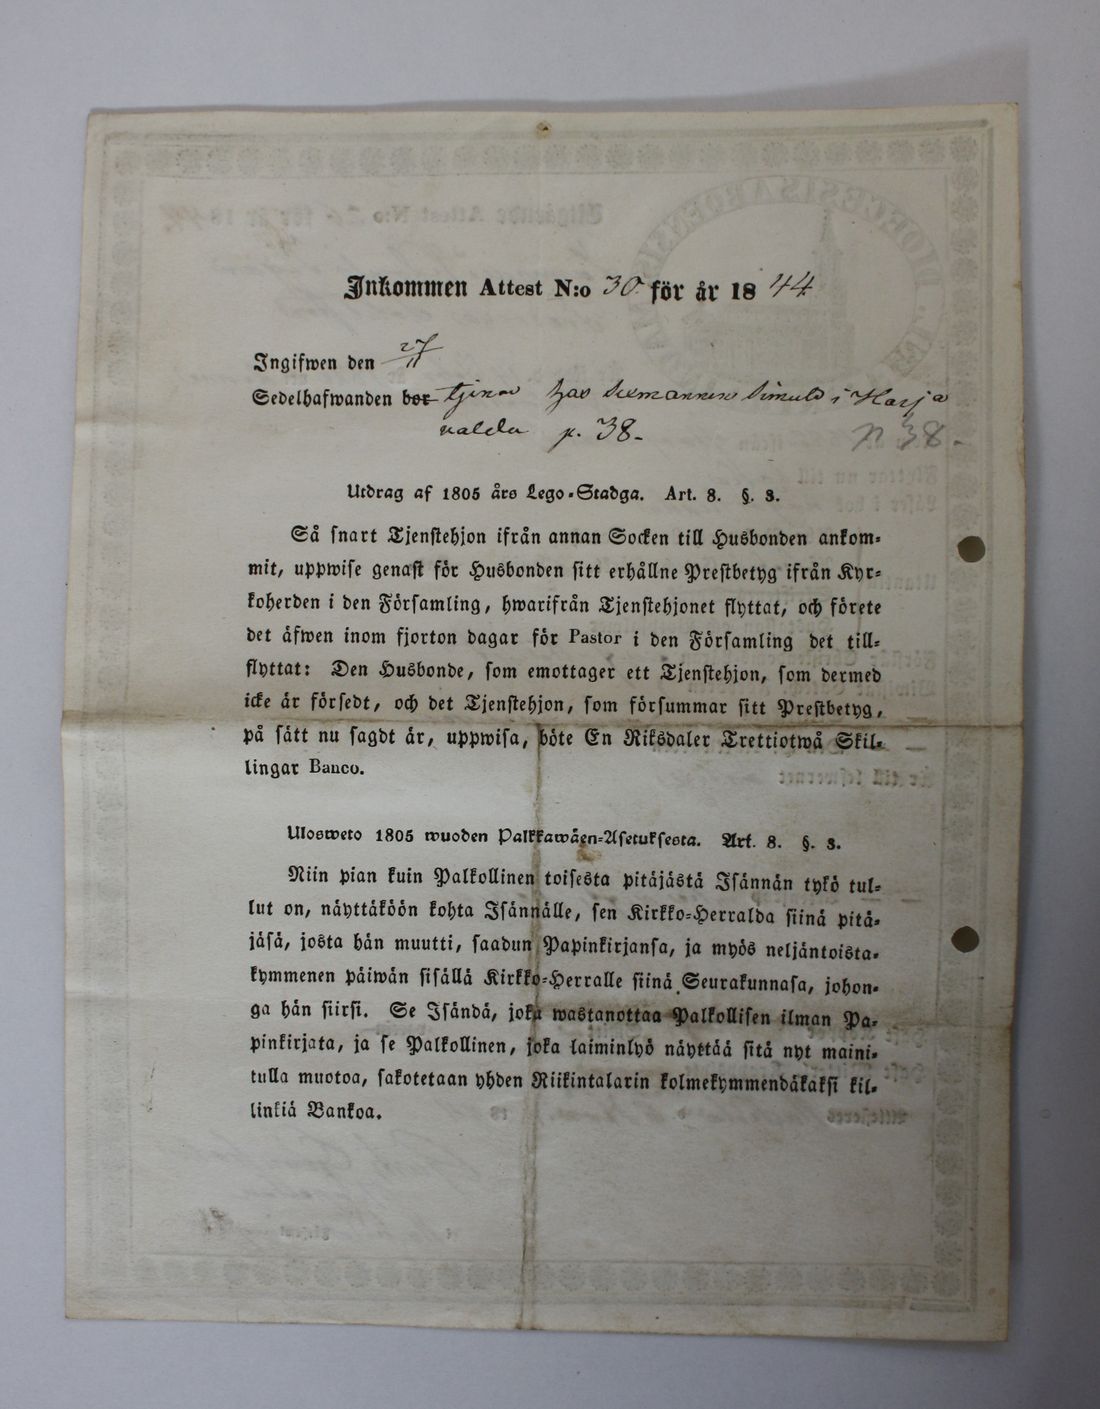 Inkommen Attest N:o 30 för år 1844
Ingifwen den 27/11
Sedelhafwanden bor tjenar hos i Harja
valda p. 38.
p 38.
Utdrag af 1805 års Lego-Stadga. Art. 8. §. 3.
Så snart Tjenstehjon ifrån annan Socken till Husbonden ankom-
mit, uppwise genast för Husbonden sitt erhållne Prestbetyg ifrån Kyr-
koherden i den Församling, hwarifrån Tjenstehjonet flyttat, och förete
det äfwen inom fjorton dagar för Pastor i den Församling det till-
flyttat: Den Husbonde, som emottager ett Tjenstehjon, som dermed
icke är försedt, och det Tjenstehjon, som försummar sitt Prestbetyg,
på sätt nu sagdt är, uppwisa, böte En Riksdaler Trettiotwå Skil-
lingar Banco.
Ulosweto 1805 wuoden Palkkawäen-Asetuksesta. Art. 8. §. 3.
Niin pian kuin Palkollinen toisesta pitäjästä Isännän tykö tul-
lut on, näyttäköön kohta Isännälle, sen Kirkko-Herralda siinä pitä-
jäsä, josta hän muutti, saadun Papinkirjansa, ja myös neljäntoista-
kymmenen päiwän sisällä Kirkko-Herralle siinä Seurakunnasa, johon-
ga hän siirsi. Se Isändä, joka wastanottaa Palkollisen ilman Pa-
pinkirjata, ja se Palkollinen, joka laiminlyö näyttää sitä nyt maini-
tulla muotoa, sakotetaan yhden Riikintalarin kolmekymmendäkaksi kil-
linkiä Bankoa.